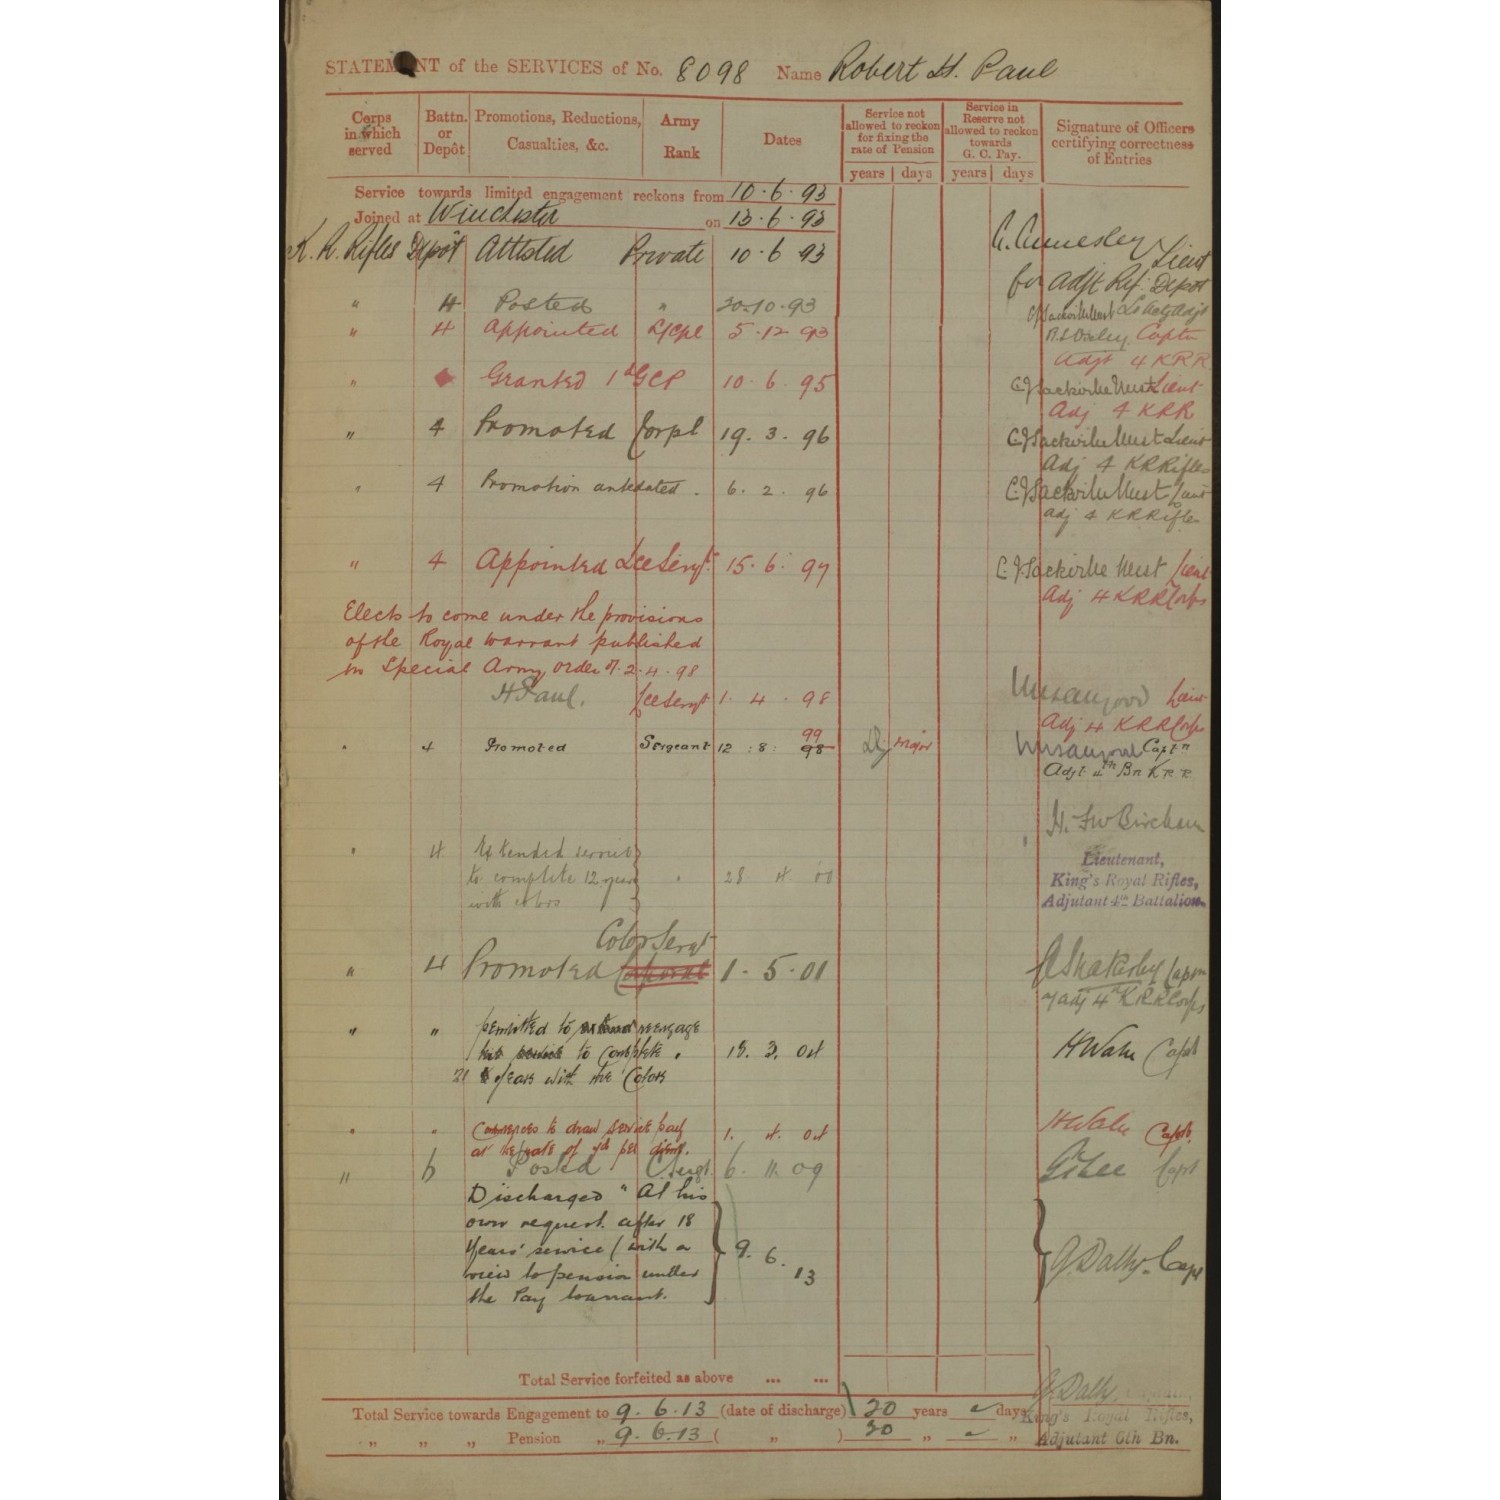 STATEMENT of the SERVICES of No. 8098 Name Robert H. Paul
Corps in which served | Battn. or Depôt | Promotions, Reductions, Casualties, &c. | Army Rank | Dates | Service not allowed to reckon for fixing the rate of Pension | Service in Reserve not allowed to reckon towards G. C. Pay. | Signature of Officers certifying correctness of Entries
years | days | years | days
Service towards limited engagement reckons from 10·6·93
Joined at Winchester on 13·6·93
K. R. Rifles Depôt Attested Private 10·6 93 Lieut
for Adjt Rif. Depot
" 4 Posted " 20·10·93
" 4 Appointed L/Cpl 5·12 93 Captn
Adjt 4 KRR
" Granted 1st GCP 10.6.95 C J Sackville West Lieut
Adj 4 KRR
" 4 Promoted Corpl 19.3.96 C J Sackville West Lieut
Adj 4 KRRifles
" 4 Promotion antedated. 6.2.96 C J Sackville West Lieut
adj 4 KRRifles
" 4 Appointed Lce Sergt. 15.6.97 C J Sackville West Lieut
Adj 4 KRRCorps
Elects to come under the provisions
of the Royal Warrant published
in Special Army Order d. 2.4.98
H Paul. Lce Sergt 1.4.98 Lieut
Adj 4 KRRCorps
" 4 Promoted Sergeant 12:8: 98 99 Major Captn
Adjt 4th Bn K R R
H. F W Bircham
" 4 Extended service
to complete 12 years
with colors " 28 4 00
Lieutenant,
King's Royal Rifles,
Adjutant 4th Battalion
Color Sergt
" 4 Promoted Corporal 1.5.01 Captn
adj 4th KRRCorps
" " permitted to extend reengage
his service to complete 15.3.04 H Wake Capt
21 years with the Colors
" " Commences to draw service pay 1.4.04 H Wake Capt.
at the rate of 7d per diem.
" 6 Posted C/Sergt. 6.11.09 Capt
Discharged "At his
own request after 18
Years' service (with a
view to pension under
the Pay Warrant. 9.6.13 G. Dalby. Capt
Total Service forfeited as above ... ...
G. Dalby,
Total Service towards Engagement to 9.6.13 (date of discharge) 20 years days
King's Royal Rifles,
" " " Pension " 9.6.13 ( " ) 20 " "
Adjutant 6th Bn.